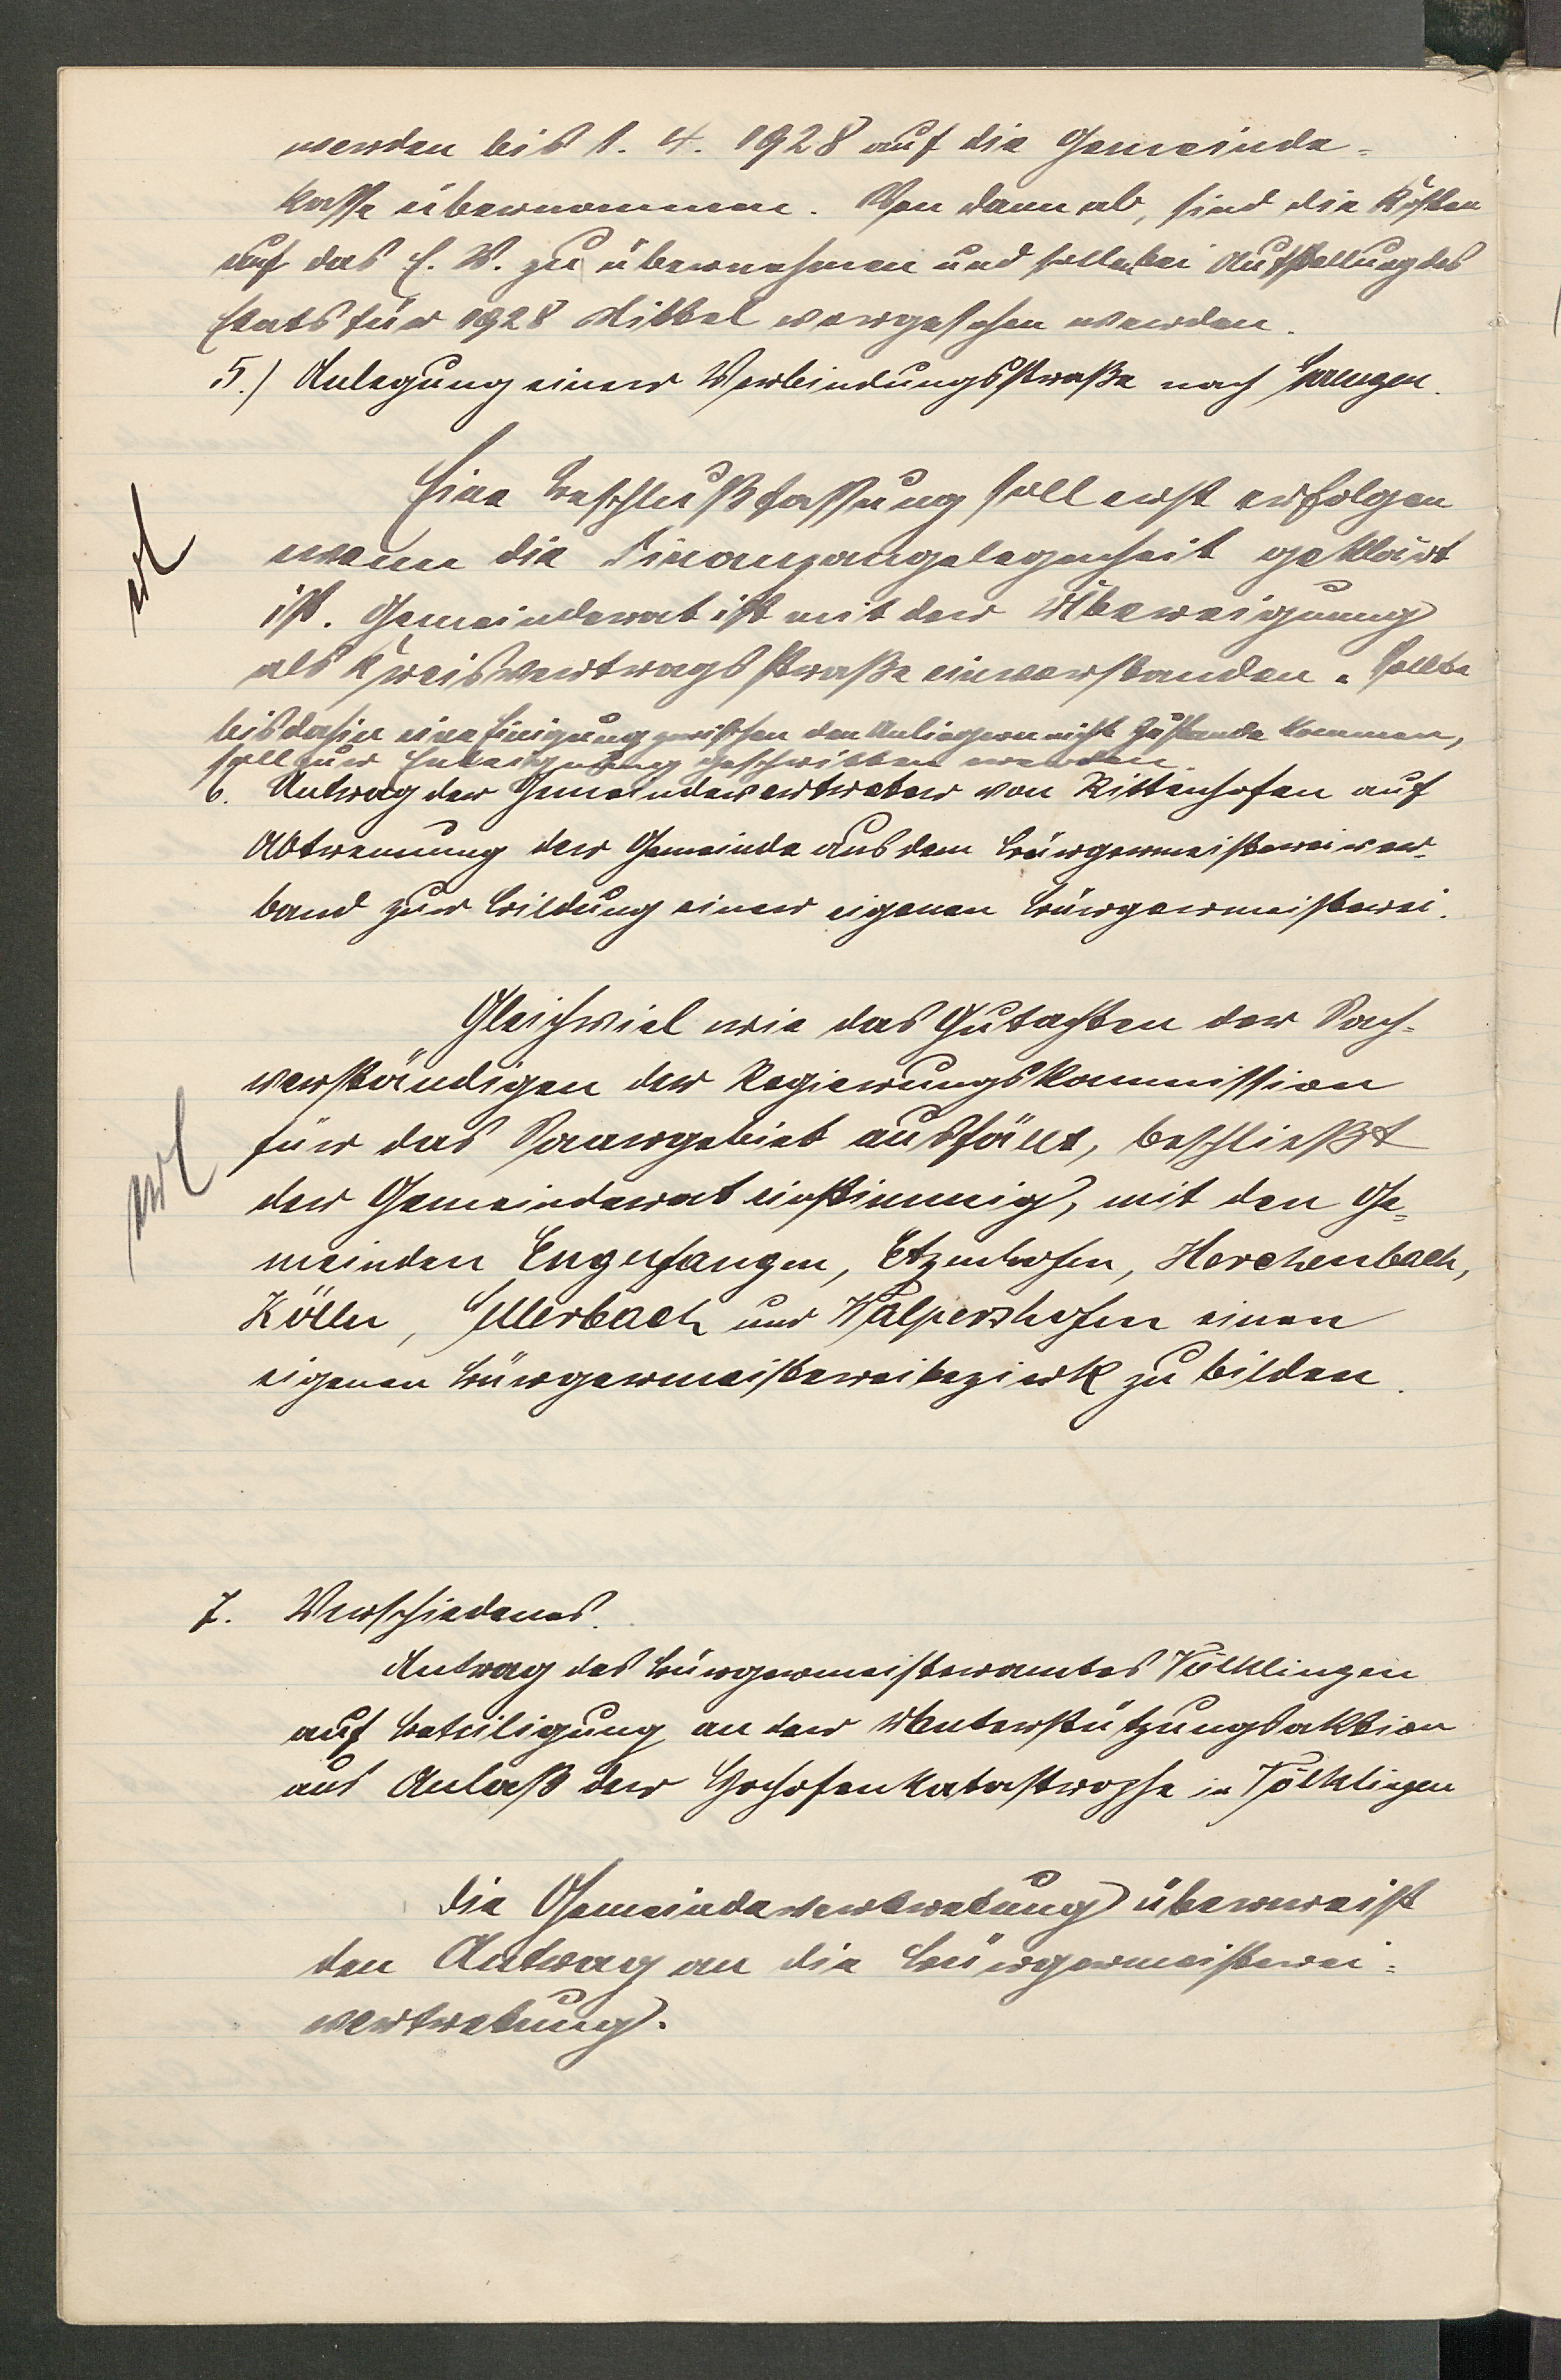 werden bis 1. 4. 1928 auf die Gemeinde-
kasse übernommen. Von dann ab, sind die Kosten
auf das E. W. zu übernehmen und sollen bei Aufstellung des
Etats für 1928 Mittel vorgesehen werden.
5.) Anlegung einer Verbindungsstraße nach
Eine Beschlußfassung soll erst erfolgen
wenn die Finanzangelegenheit geklärt
erl
ist. Gemeinderat ist mit der Übereignung
als Kreisvertragsstraße einverstanden. Sollte
bis dahin eine Einigung zwischen den Anliegern nicht zustande kommen,
soll zur Enteignung geschritten werden.
6. Antrag der Gemeindevertreter von Rittenhofen auf
Abtrennung der Gemeinde aus dem Bürgermeistereiver-
band zur Bildung einer eigenen Bürgermeisterei.
Gleichviel wie das Gutachten der Sach-
verständigen der Regierungskommission
für das Saargebiet ausfällt, beschließt
erl
der Gemeinderat einstimmig, mit den Ge-
meinden Engelfangen, Etzenhofen, Herchenbach,
Kölln, Sellerbach und Walpershofen einen
eigenen Bürgermeistereibezirk zu bilden.
7. Verschiedenes.
Antrag des Bürgermeisteramtes Völklingen
auf Beteiligung an der Unterstützungsaktion
aus Anlaß der Hochofenkatastrophe in Völklingen
Die Gemeindevertretung überweist
den Antrag an die Bürgermeisterei-
vertretung.